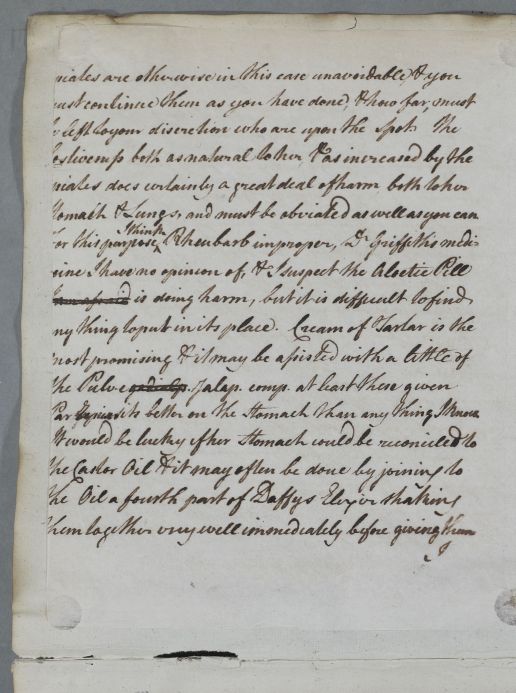 piates are otherwise in this case unavoidable, & you
must continue them as you have done, & how far, must
be left to your discretion who are upon the spot. The
Costiveness both as natural to her, & as increased by the
piates does certainly a great deal of harm both to her
tomach & Lungs, and must be obviated as well as you can
For this purpose, I think Rheubarb improper, Dr Griffiths medi-
cine I have no opinion of, & I suspect the Aloetic Pill
is doing harm, but it is difficult to find
ny thing to put in its place. Cream of Tartar is the
most promising & it may be assisted with a little of
the Pulv. Jalap. comp. at least these given
sits better on the Stomach than any thing I know
It would be lucky if her Stomach could be reconciled to
the Castor Oil & it may often be done by joining to
the Oil a fourth part of Daffys Elixir shaking
them together very well immediately before giving them